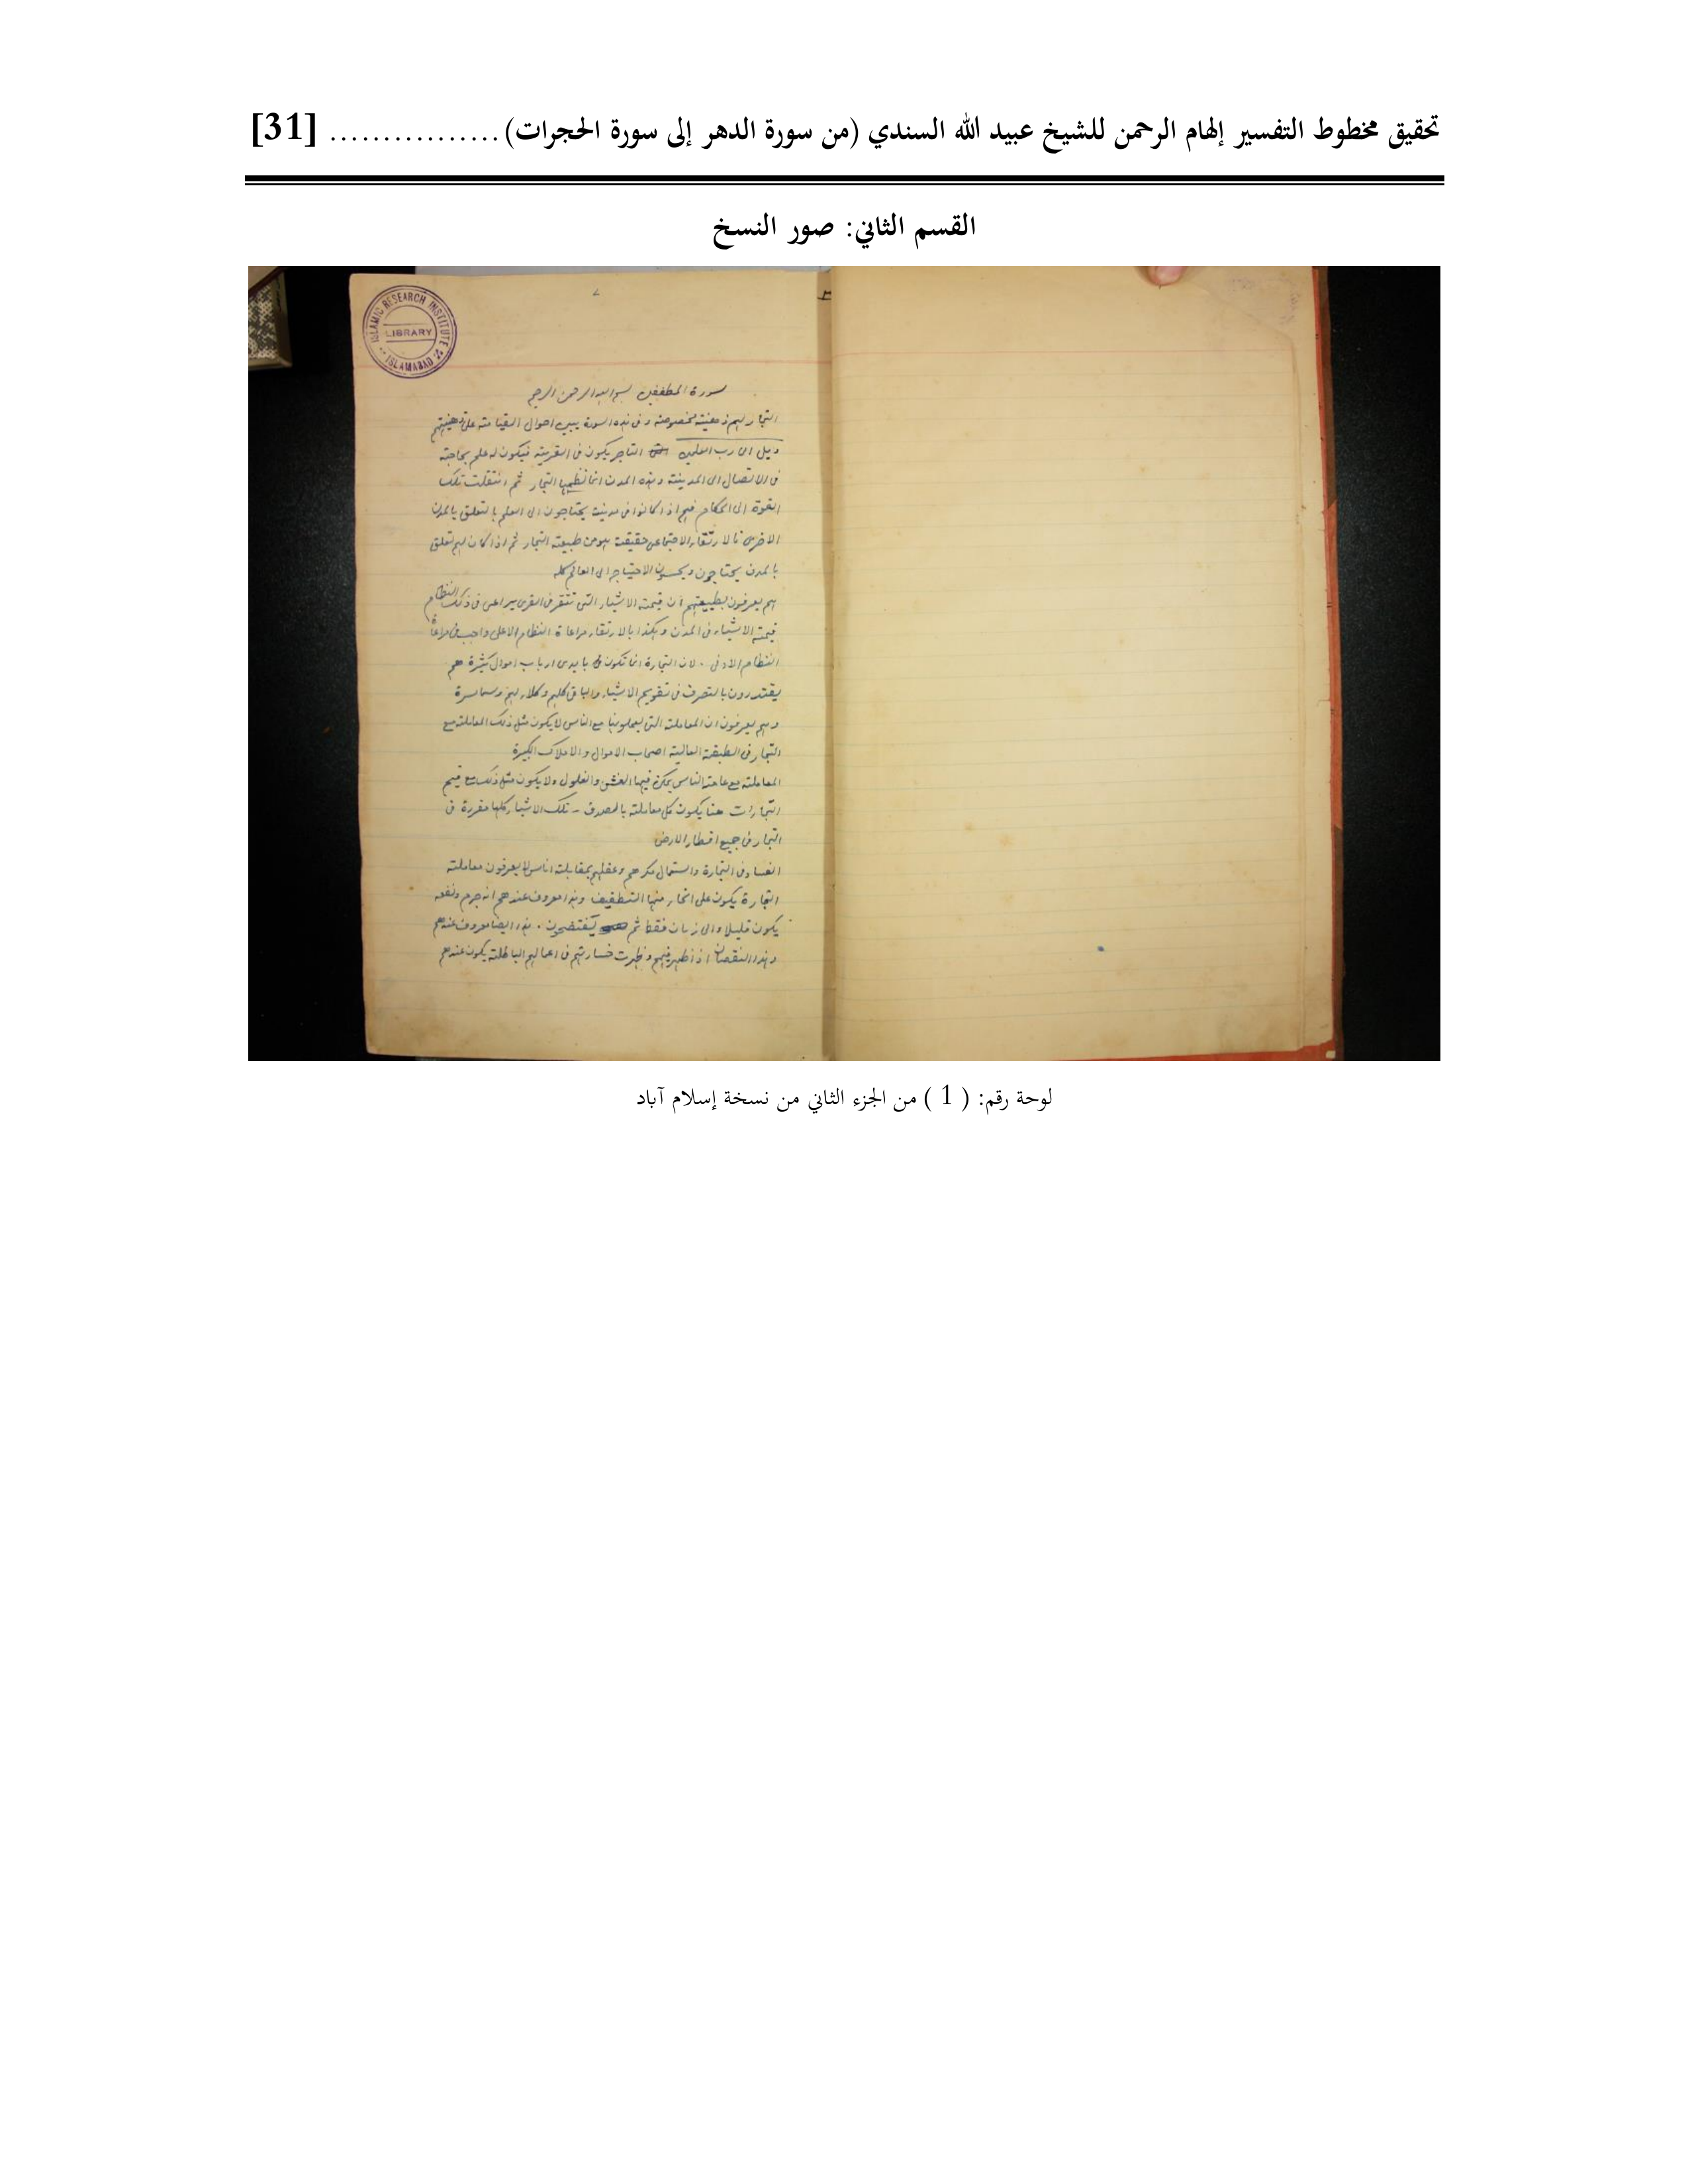 تحقيق مخطوط التفسير إلهام الرحمن للشيخ عبيد الله السندي (من سورة الدهر إلى سورة الحجرات)................ [31]
القسم الثاني: صور النسخ
ISLAMIC RESEARCH INSTITUTE
LIBRARY
ISLAMABAD
سورة المطففين بسم الله الرحمن الرحيم
التجار لهم ذهنية مخصوصة وفى هذه السورة يبين احوال القيامة على ذهنيتهم
ويل الى رب العلمين التاجر يكون فى القرية فيكون له علم بحاجته
فى الاتصال الى المدينة وهذه المدن انما نظمها التجار ثم انتقلت تلك
القوة الى الحكام فهم اذا كانوا فى مدينة يحتاجون الى العلم بالتعلق بالمدن
الاخرى فالارتقاء الاجتماعى حقيقت هو من طبيعة التجار ثم اذا كان لهم تعلق
بالمدن يحتاجون ويحسون الاحتياج الى العالم كله
هم يعرفون بطبيعتهم ان قيمة الاشياء التى تتقرر فى القرى يراعى فى ذلك النظام
قيمة الاشياء فى المدن وهكذا بالارتقاء مراعاة النظام الاعلى واجب فى مراعاة
النظام الادنى . لان التجارة انما تكون بايدى ارباب اموال كثيرة هم
يقتدرون بالتصرف فى تقويم الاشياء والباقى كلهم وكلاء لهم وسماسرة
وهم يعرفون ان المعاملة التى يعملونها مع الناس لا يكون مثل ذلك المعاملة مع
التجار فى الطبقة العالية اصحاب الاموال والاملاك الكبيرة
المعاملة مع عامة الناس يمكن فيها الغش والغلول ولا يكون مثل ذلك مع قيم
التجارات هنا يكون كل معاملة بالصدق - تلك الاشياء كلها مقررة فى
التجار فى جميع اقطار الارض
الفساد فى التجارة واستعمال مكرهم وعقلهم بمقابلة اناس لا يعرفون معاملة
التجارة يكون على انحاء منها التطفيف وهذا معروف عندهم انه جرم ونفعه
يكون قليلا والى زمان فقط ثم يفتضحون . هذا ايضا معروف عندهم
وهذا النقصان اذا ظهر فيهم وظهرت خسارتهم فى اعمالهم الباطلة يكون عندهم
لوحة رقم: ( 1 ) من الجزء الثاني من نسخة إسلام آباد